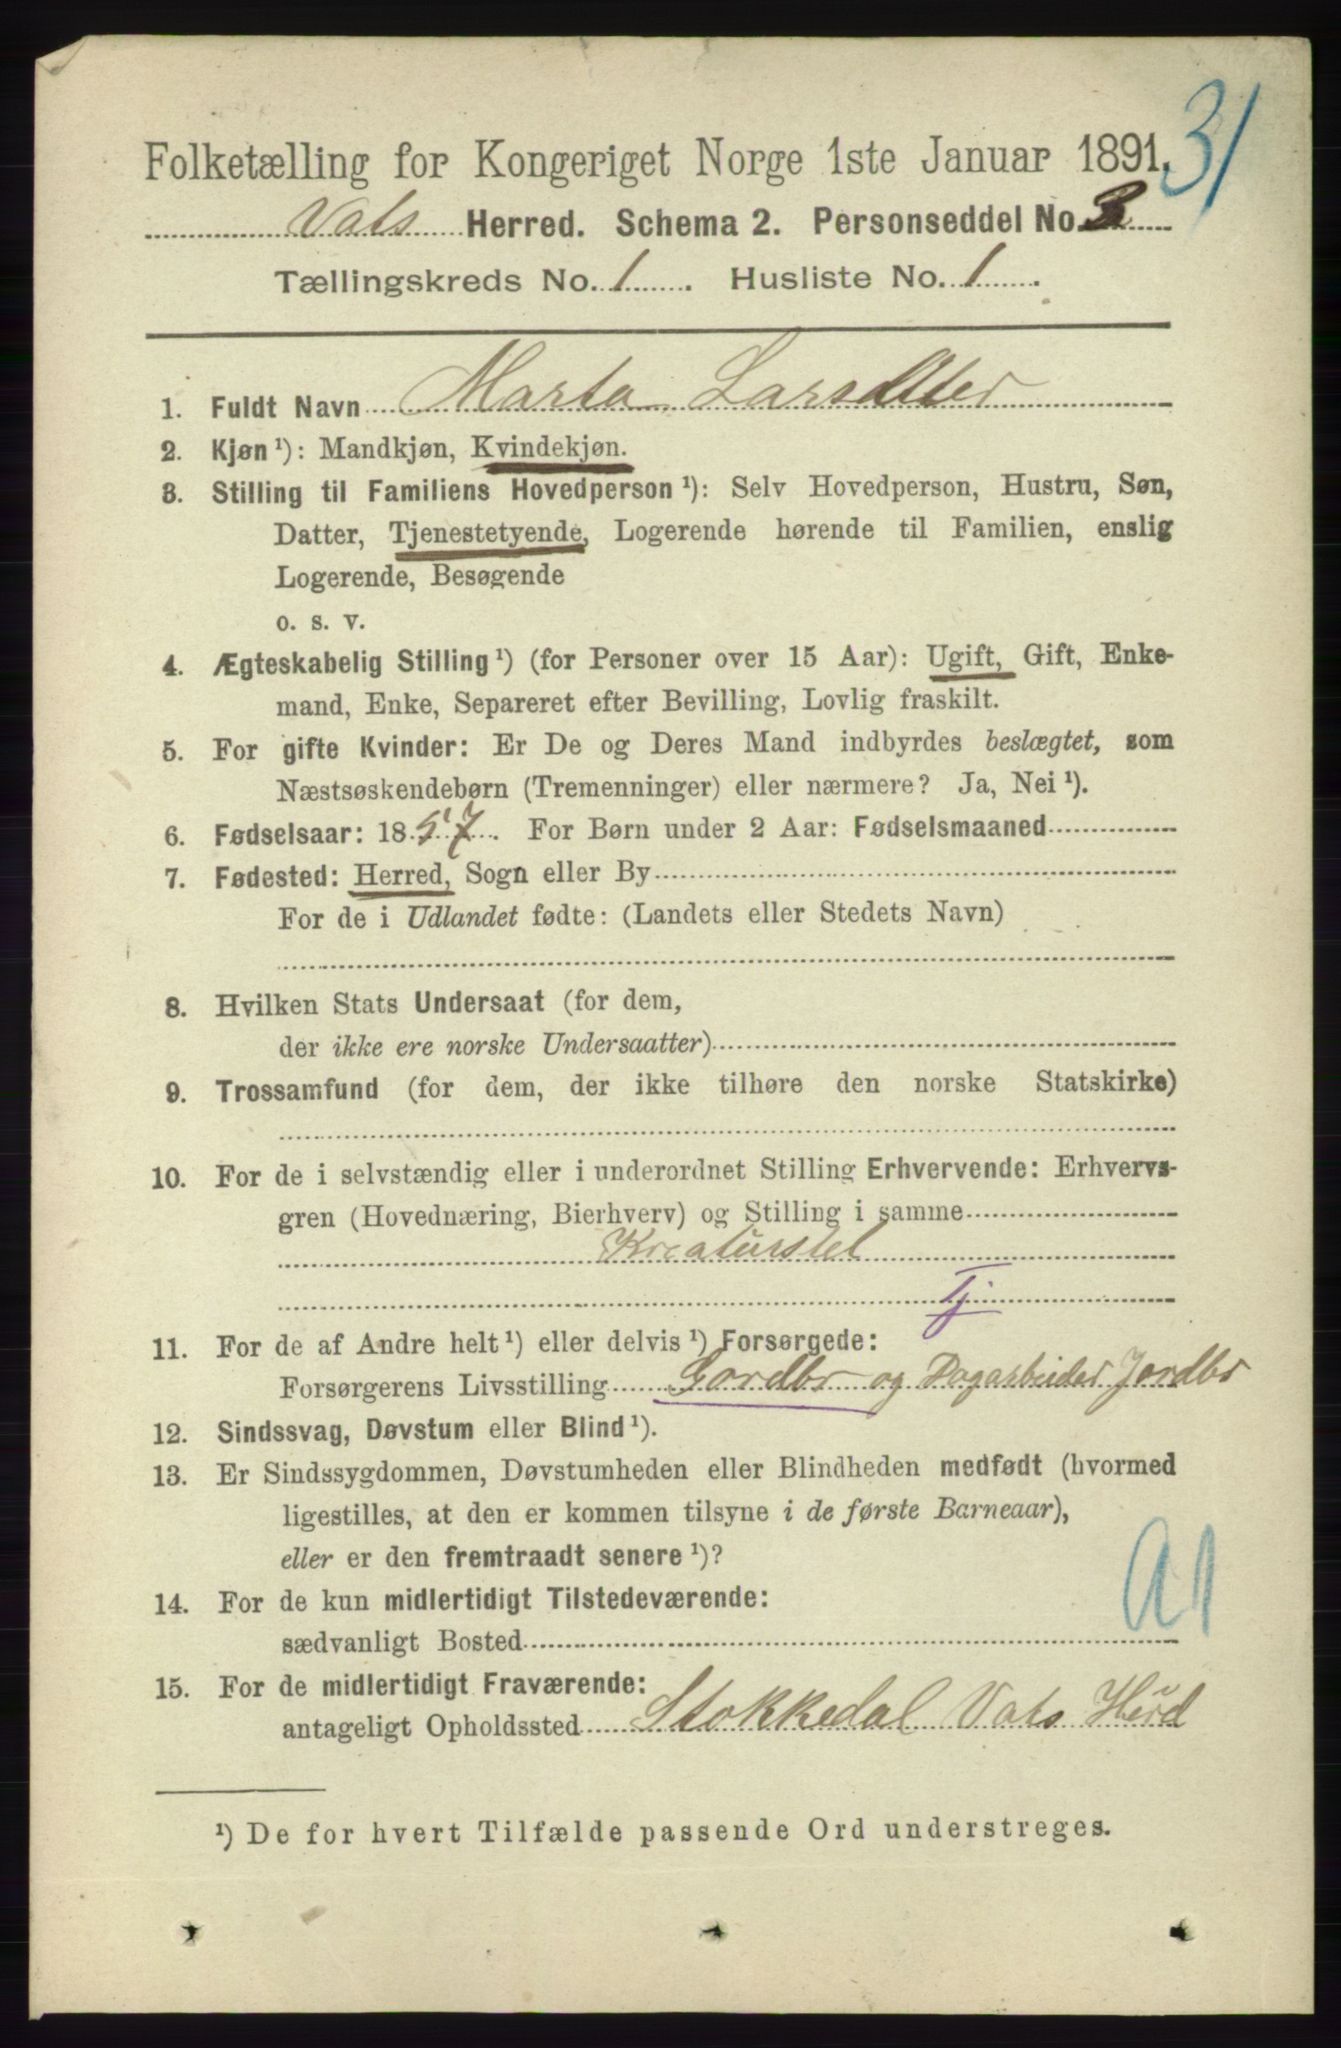 31
Folketælling for Kongeriget Norge 1ste Januar 1891.
Vats Herred. Schema 2. Personseddel No.
Tællingskreds No. 1. Husliste No. 1.
1. Fuldt Navn Marta Larsdtter
2. Kjøn ¹): Mandkjøn, Kvindekjøn.
3. Stilling til Familiens Hovedperson ¹): Selv Hovedperson, Hustru, Søn,
Datter, Tjenestetyende, Logerende hørende til Familien, enslig
Logerende, Besøgende
o. s. v.
4. Ægteskabelig Stilling ¹) (for Personer over 15 Aar): Ugift, Gift, Enke-
mand, Enke, Separeret efter Bevilling, Lovlig fraskilt.
5. For gifte Kvinder: Er De og Deres Mand indbyrdes beslægtet, som
Næstsøskendebørn (Tremenninger) eller nærmere? Ja, Nei ¹).
6. Fødselsaar: 1857. For Børn under 2 Aar: Fødselsmaaned
7. Fødested: Herred, Sogn eller By
For de i Udlandet fødte: (Landets eller Stedets Navn)
8. Hvilken Stats Undersaat (for dem,
der ikke ere norske Undersaatter)
9. Trossamfund (for dem, der ikke tilhøre den norske Statskirke)
10. For de i selvstændig eller i underordnet Stilling Erhvervende: Erhvervs-
gren (Hovednæring, Bierhverv) og Stilling i samme
Kreaturstel
Tj
11. For de af Andre helt ¹) eller delvis ¹) Forsørgede:
Forsørgerens Livsstilling Gardbr og Dagarbeider Jordbr
12. Sindssvag, Døvstum eller Blind ¹).
13. Er Sindssygdommen, Døvstumheden eller Blindheden medfødt (hvormed
ligestilles, at den er kommen tilsyne i de første Barneaar),
eller er den fremtraadt senere ¹)?
14. For de kun midlertidigt Tilstedeværende:
sædvanligt Bosted
15. For de midlertidigt Fraværende:
antageligt Opholdssted Stokkedal Vats Herd
¹) De for hvert Tilfælde passende Ord understreges.